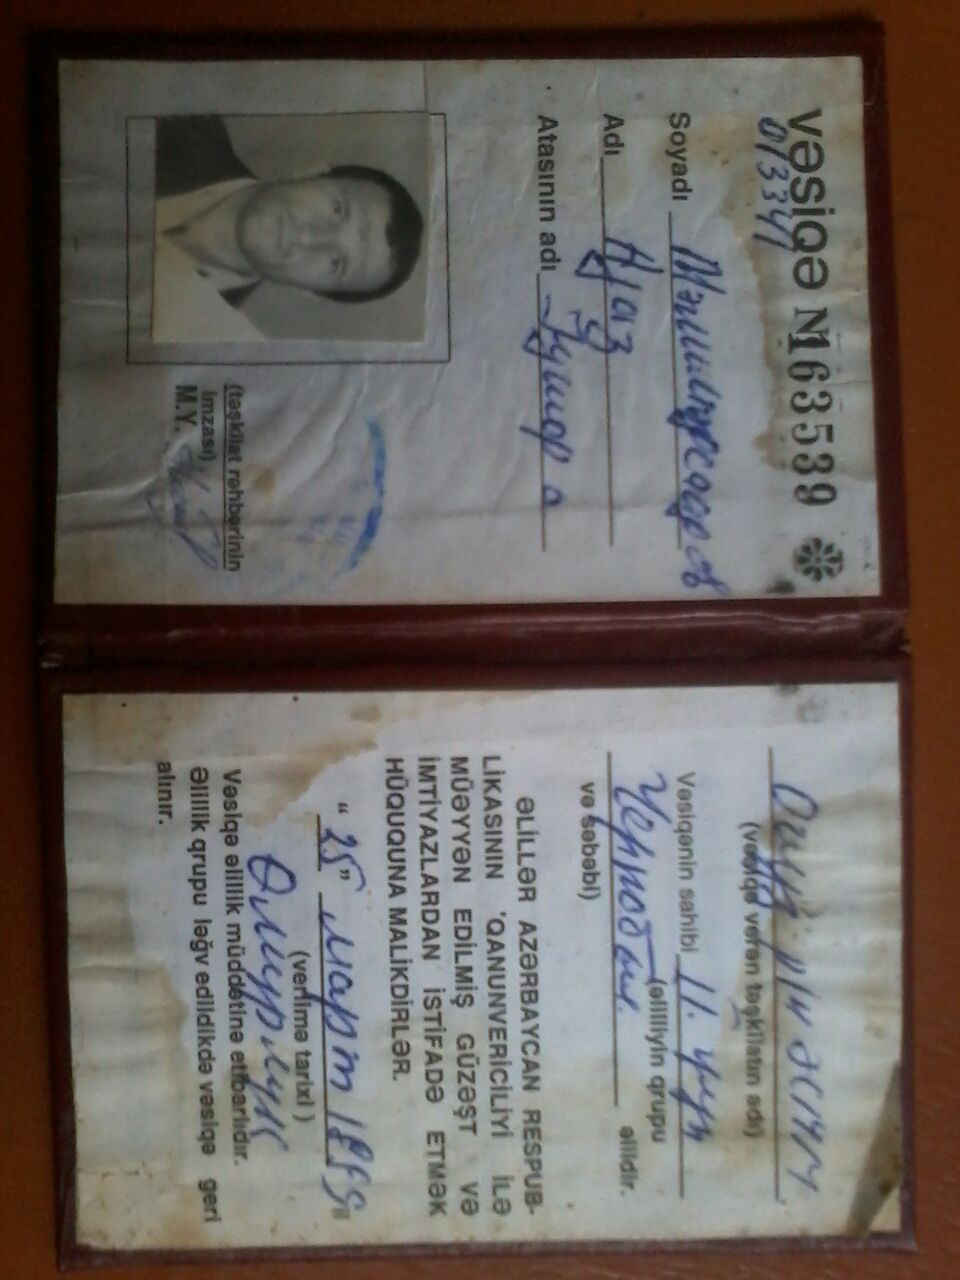 VƏSİQƏ №163539
013341
Soyadı
Adı Нјаз
Atasının adı
(təşkilat rəhbərinin
imzası)
M.Y.
(vəsiqə verən təşkilatın adı)
Vəsiqənin sahibi II групп
(əlilliyin qrupu
Чернобыл əlildir.
və səbəbi)
ƏLİLLƏR AZƏRBAYCAN RESPUB-
LİKASININ 'QANUNVERİCİLİYİ İLƏ
MÜƏYYƏN EDİLMİŞ GÜZƏŞT VƏ
İMTİYAZLARDAN İSTİFADƏ ETMƏK
HÜQUQUNA MALİKDİRLƏR.
"25" март
(verilmə tarixi)
Өмүрлүк
Vəsiqə əlillik müddətinə etibarlıdır.
Əlillik qrupu ləğv edildikdə vəsiqə geri
alınır.